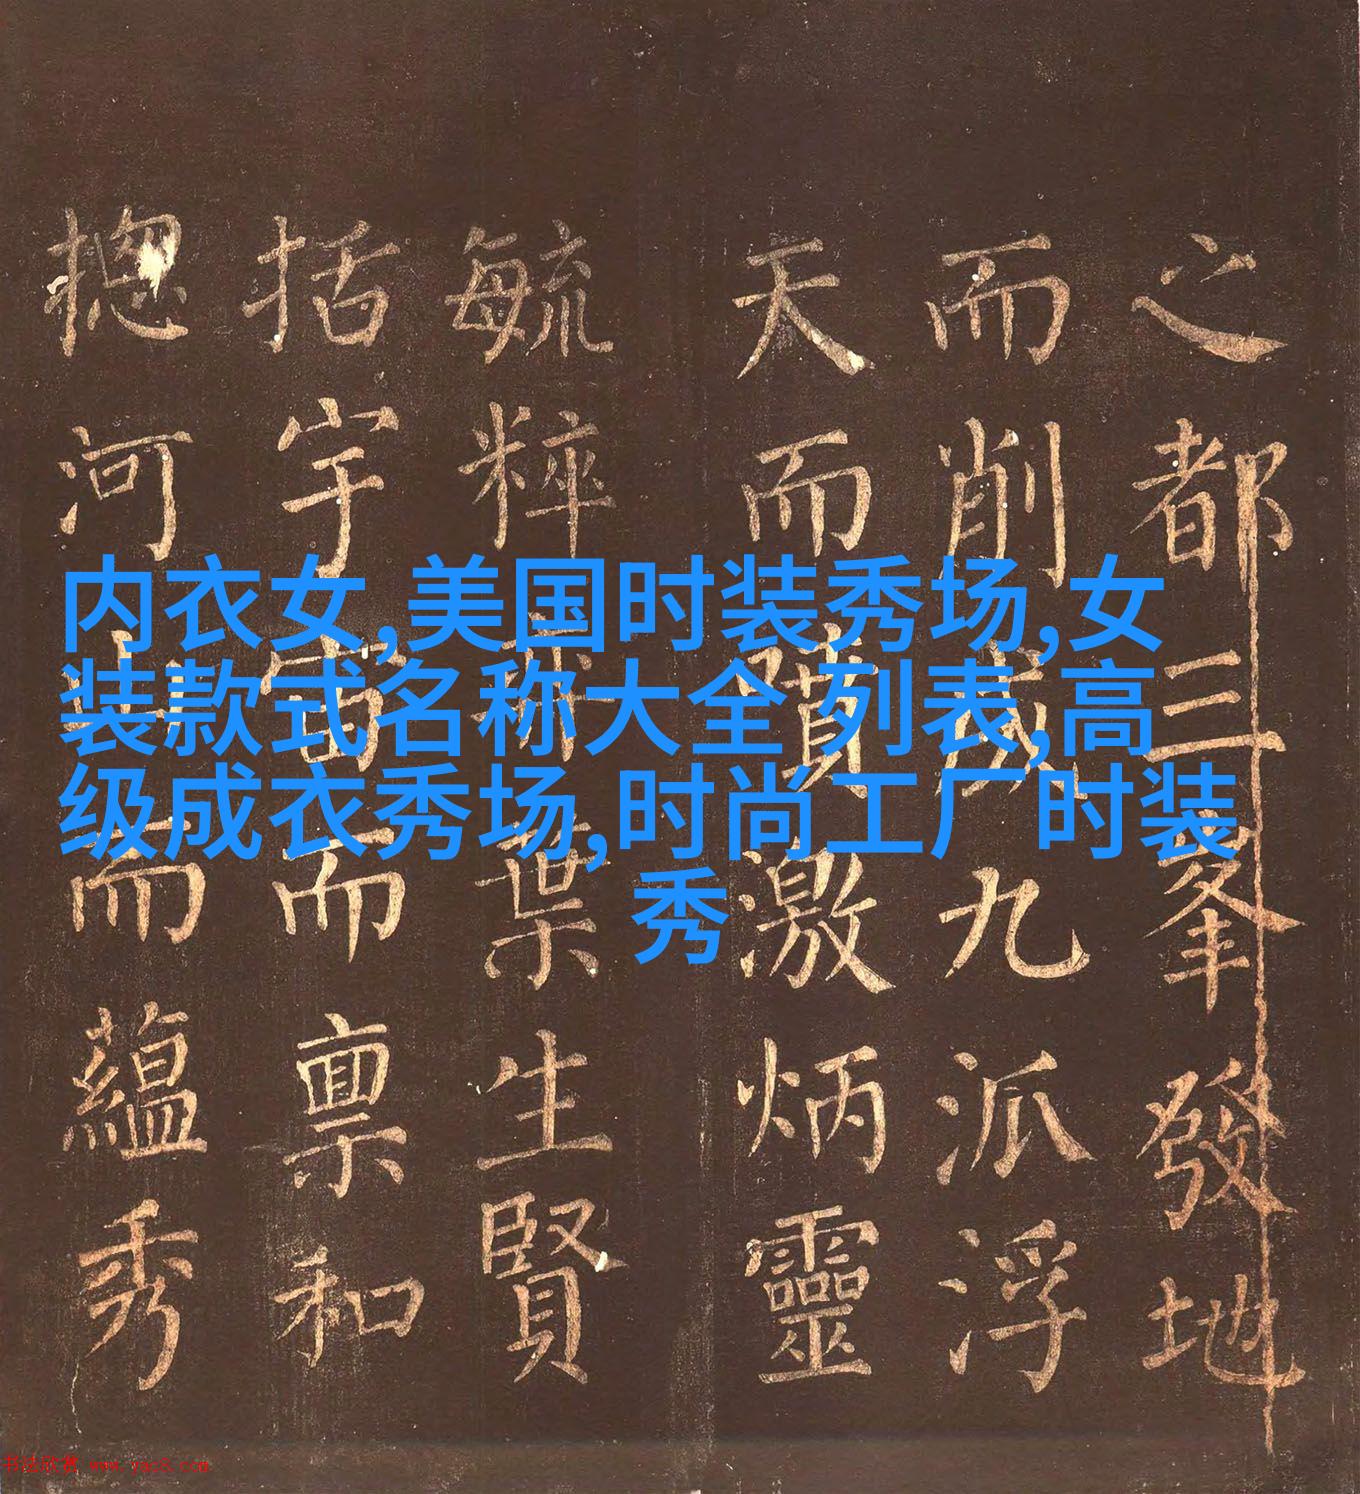 内衣女,美国时装秀场,女
装款式名称大全 列表,高
级成衣秀场,时尚工厂时装
秀
之都三峯發地
而削成九派浮
天而噴激炳靈
毓粹葉生賢
括宇宙而禀和
摠河山而蘊秀
书法欣赏 www.yac8.com